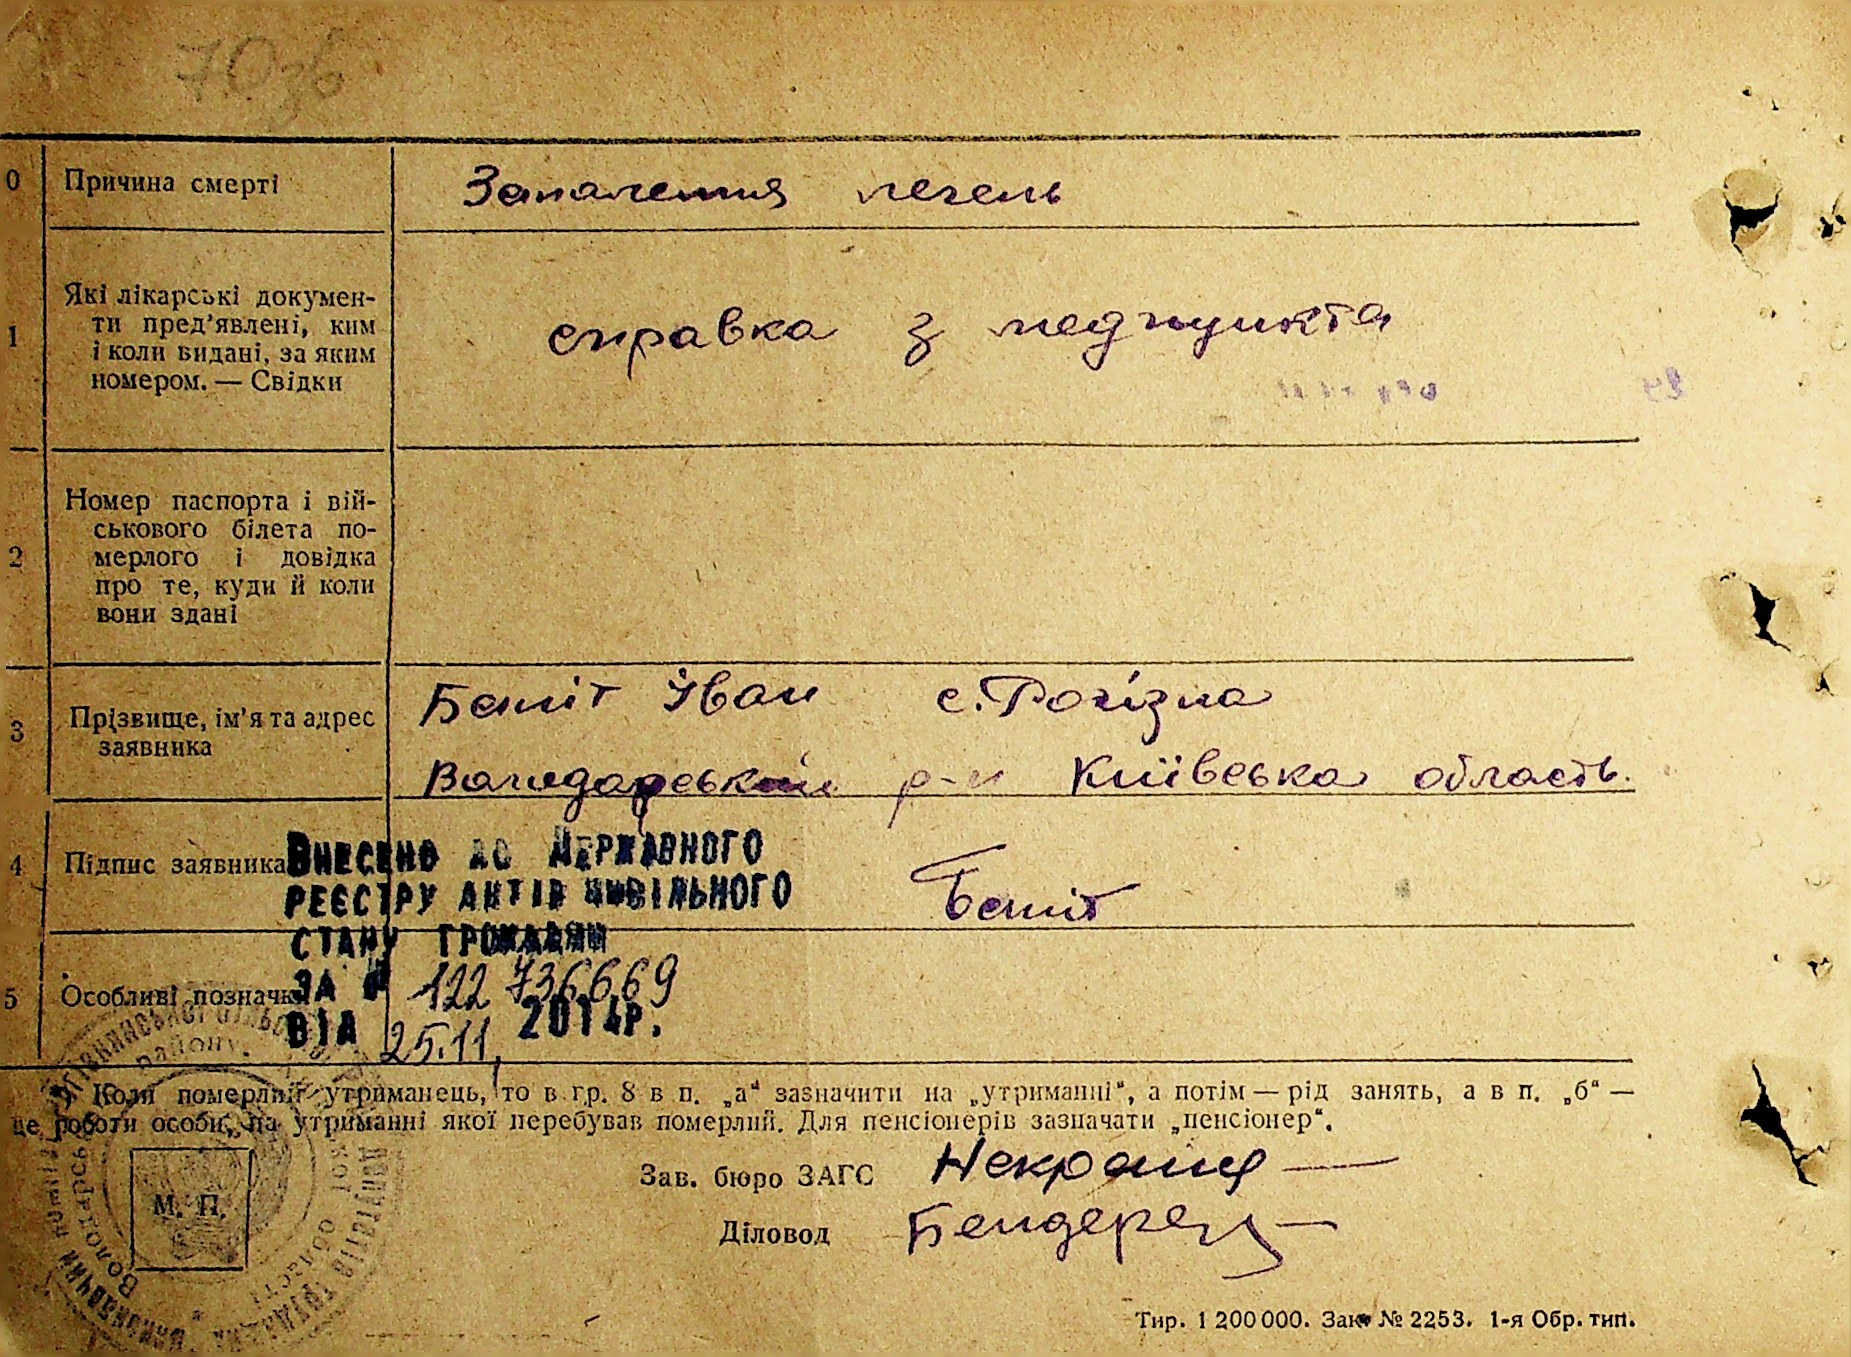 0 Причина смерті Запалення легень
Які лікарські докумен-
ти пред'явлені, ким
1 і коли видані, за яким
номером. — Свідки
справка з медпункта
Номер паспорта і вій-
ськового білета по-
2 мерлого і довідка
про те, куди й коли
вони здані
3 Прізвище, ім'я та адрес
заявника
Іван с. Рогізна
Володарський р-н Київська область.
4 Підпис заявника
Внесено до Державного
реєстру актів цивільного
стану громадян
5 Особливі позначки
за № 122 736669
від 25.11. 2014р.
*) Коли померлий утриманець, то в гр. 8 в п. „а“ зазначити на „утриманні“, а потім — рід занять, а в п. „б“ —
це роботи особи, на утриманні якої перебував померлий. Для пенсіонерів зазначати „пенсіонер“.
Зав. бюро ЗАГС
Діловод
М. П.
Тир. 1 200 000. Зак. № 2253. 1-я Обр. тип.